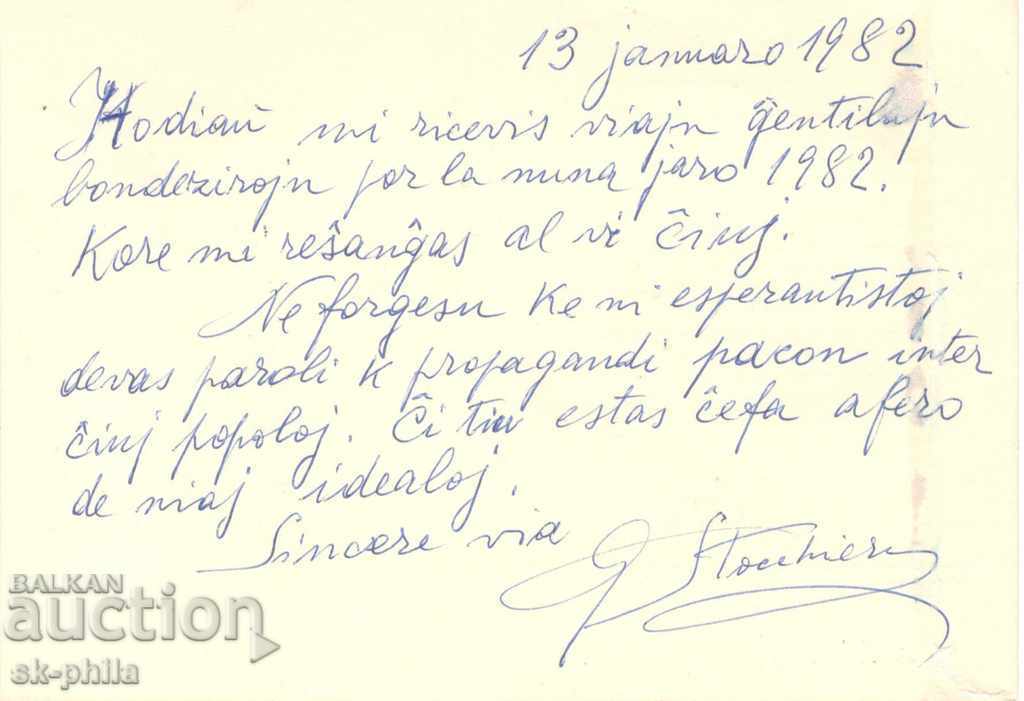 13 januaro 1982
Hodiaŭ mi ricevis viajn ĝentilajn
bondezirojn por la nuna jaro 1982.
Kore mi reŝanĝas al vi ĉiuj.
Ne forgesu ke ni esperantistoj
devas paroli k propagandi pacon inter
ĉiuj popoloj. Ĉi tiu estas ĉefa afero
de niaj idealoj.
Sincere via
BALKAN
auction
sk-phila